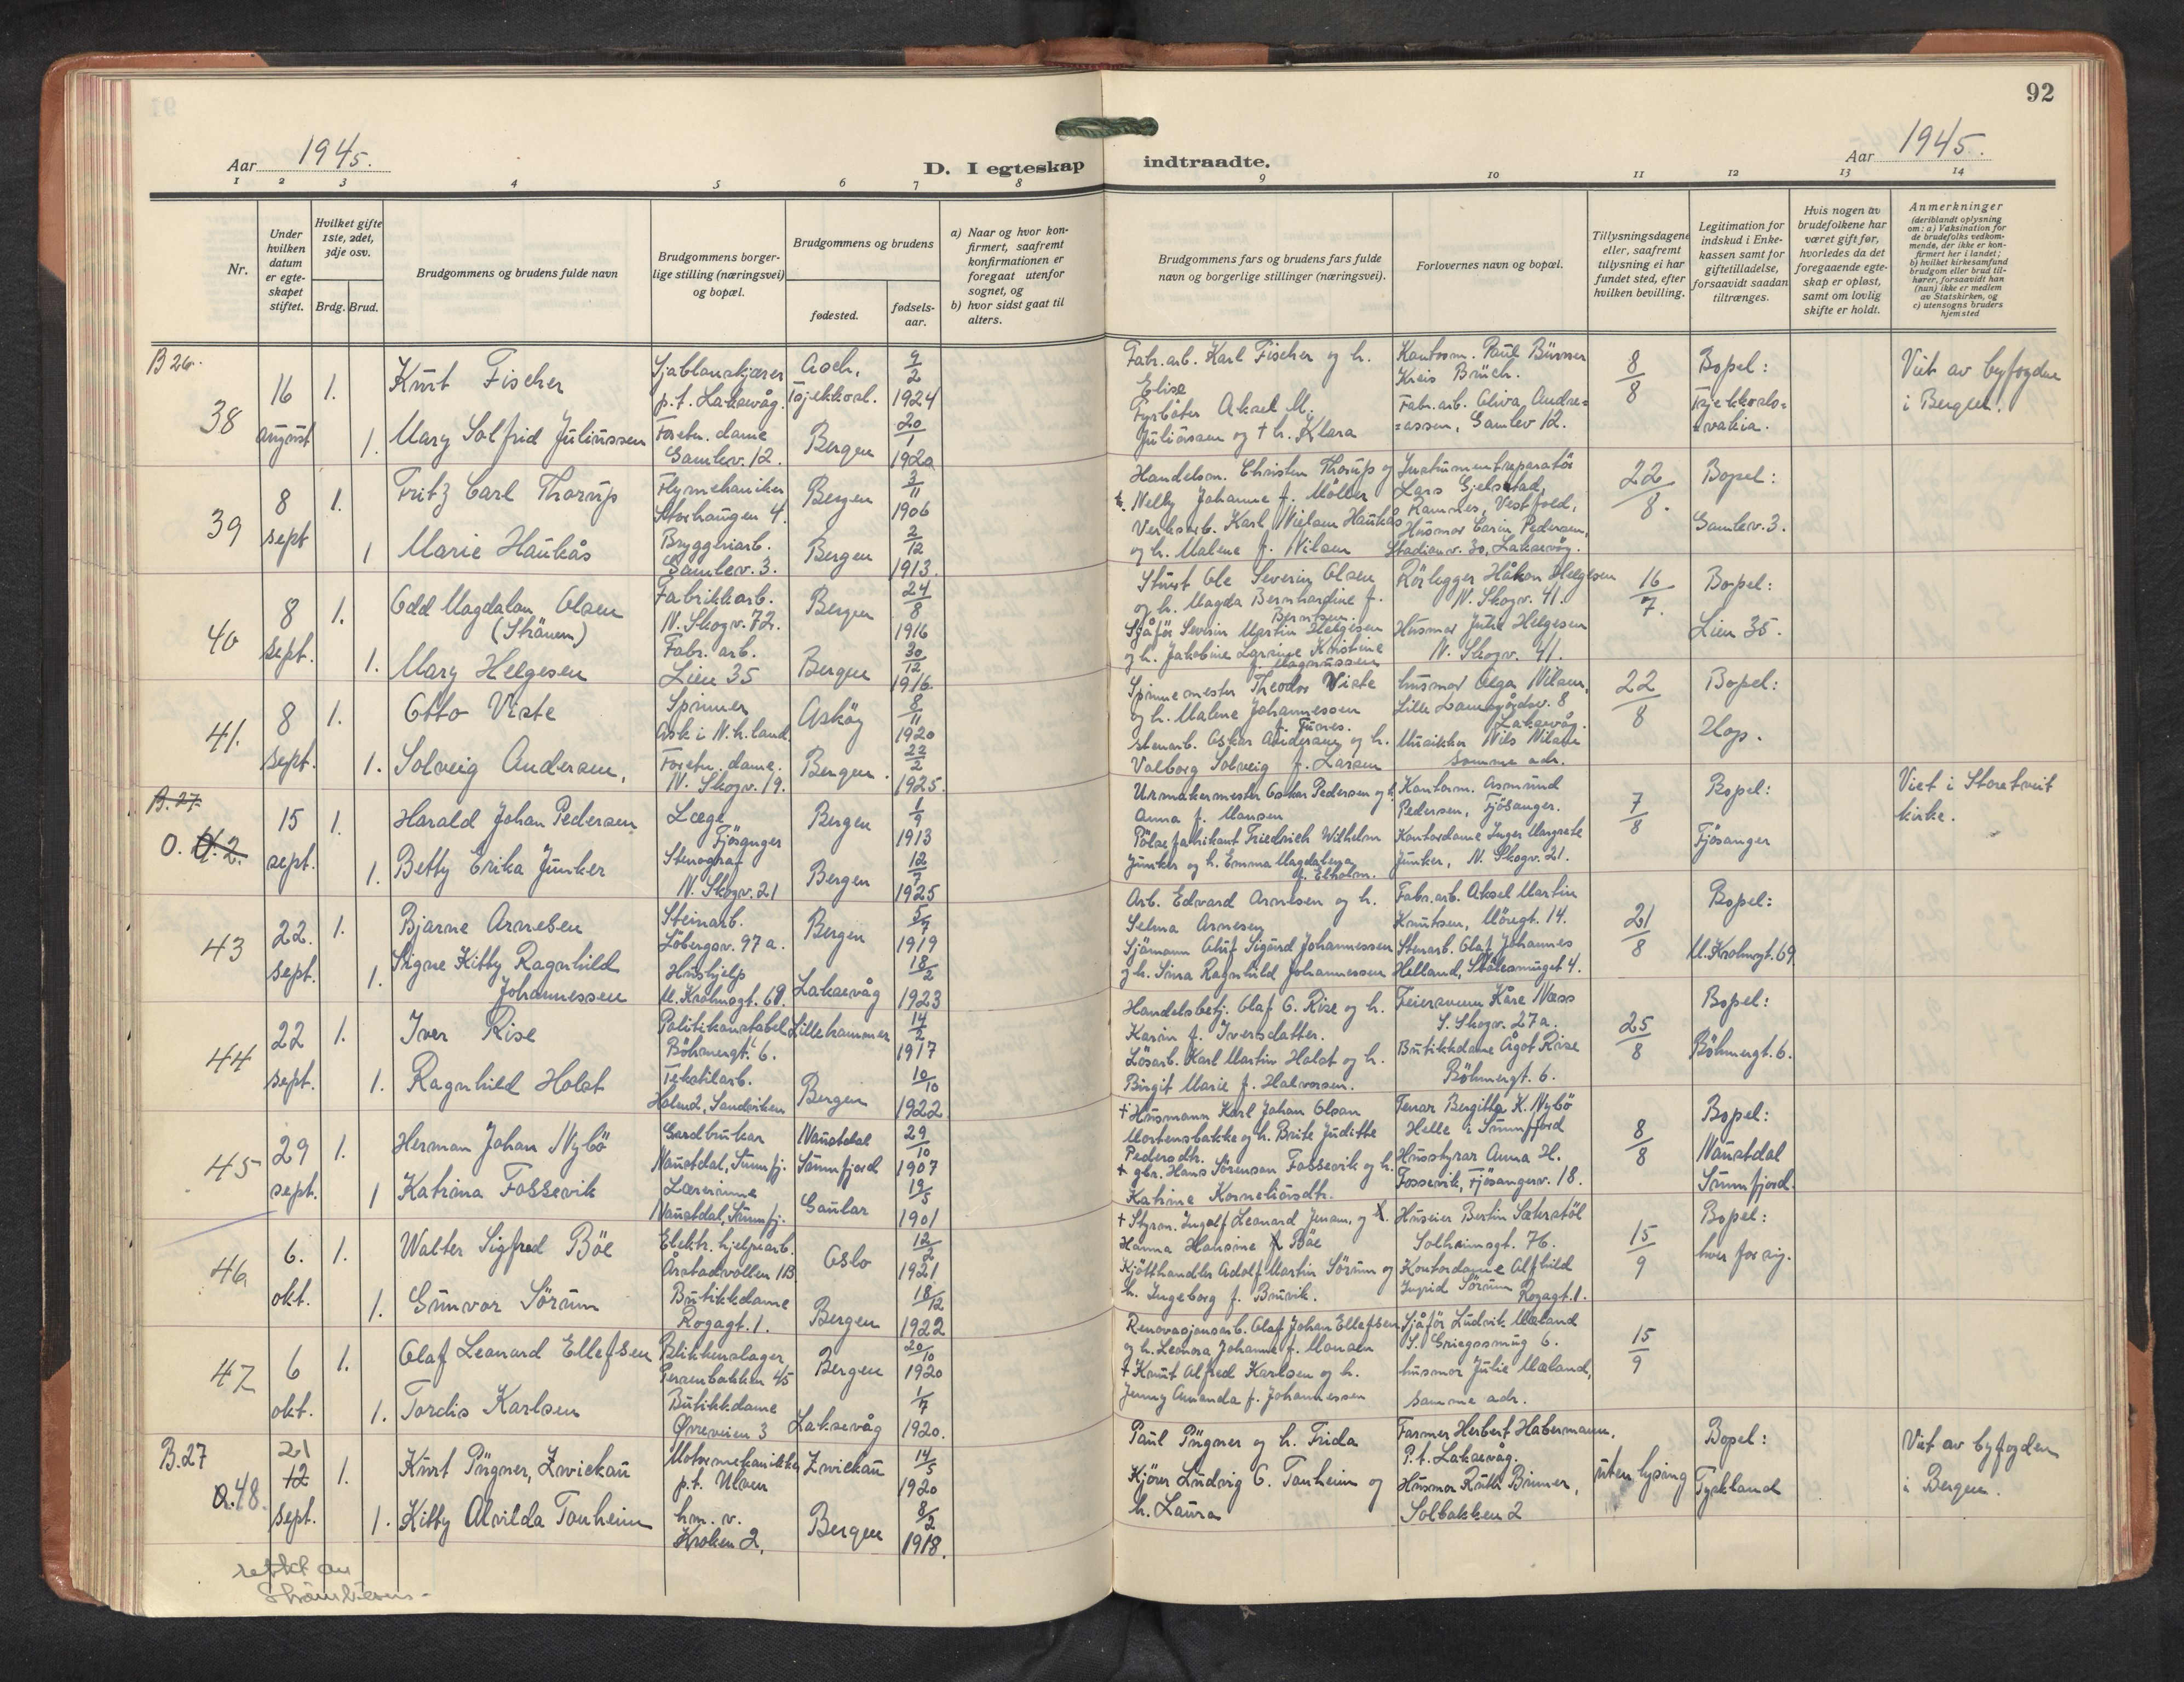 92
Aar 1945.
D. I egteskap indtraadte.
Aar 1945.
1 2 3 4 5 6 7 8 9 10 11 12 13 14
Nr.
Under hvilken datum er egteskapet stiftet.
Hvilket gifte 1ste, 2det, 3dje osv.
Brdg. Brud.
Brudgommens og brudens fulde navn
Brudgommens borgerlige stilling (næringsvei) og bopæl.
Brudgommens og brudens
fødested.
fødselsaar.
a) Naar og hvor konfirmert, saafremt konfirmationen er foregaat utenfor sognet, og
b) hvor sidst gaat til alters.
Brudgommens fars og brudens fars fulde navn og borgerlige stillinger (næringsvei).
Forlovernes navn og bopæl.
Tillysningsdagene eller, saafremt tillysning ei har fundet sted, efter hvilken bevilling.
Legitimation for indskud i Enkekassen samt for giftetilladelse, forsaavidt saadan tiltrænges.
Hvis nogen av brudefolkene har været gift før, hvorledes da det foregaaende egteskap er opløst, samt om lovlig skifte er holdt.
Anmerkninger
(deriblandt oplysning om: a) Vaksination for de brudefolks vedkommende, der ikke er konfirmert her i landet; b) hvilket kirkesamfund brudgom eller brud tilhører, forsaavidt han (hun) ikke er medlem av Statskirken, og c) utensogns bruders hjemsted
B 26.
38
16 august
1. Kurt Fischer
Sjablonskjærer p.t. Laksevåg.
Asch, Tsjekkosl.
9/2 1924
1. Mary Solfrid Juliussen
Forretn. dame Gamlev. 12.
Bergen
20/1 1920
Fabr. arb. Karl Fischer og h. Elise
Fyrbøter Aksel M. Juliussen og + h. Klara
Kreis Brüch.
Fabr. arb. Andreassen, Gamlev 12.
8/8
Bopel: Tsjekkoslovakia.
Viet av byfogden i Bergen.
39
8 sept
1. Fritz Carl Thorup
Flymekaniker Storhaugen 4.
Bergen
3/11 1906
1 Marie Haukås
Bryggeriarb. Gamlev. 3.
Bergen
2/12 1913.
Handelsm. Christen Thorup og h. Nelly Johanne f. Möller
Verksarb. Karl Nielsen Haukås og h. Malene f. Nilsen
Instrumentreparatör Lars Gjelstad, Ramnes, Vestfold,
Husmor Carin Pedersen, Stadionv. 30, Laksevåg.
22/8.
Bopel: Gamlev. 3.
40
8 sept.
1. Odd Magdalon Olsen
Fabrikkarb. N. Skogv. 72.
Bergen
24/8 1916
1. Mary Helgesen
Fabr. arb. Lien 35
Bergen
30/12 1916.
Ole Severin Olsen og h. Magda Bernhardine f. Berntsen.
Sjåför Severin Martin Helgesen og h. Jakobine Larsine Kristine f. Magnussen
Rörlegger Håkon Helgesen N. Skogv. 41.
Husmor Julie Helgesen N. Skogv. 41.
16/7.
Bopel: Lien 35.
41.
8 sept.
1. Otto Viste
Spinner Ask i N.h.land.
Asköy
8/11 1920
1. Solveig Andersen,
Forretn. dame. N. Skogv. 19.
Bergen.
22/2 1925.
Spinnemester Theodor Viste og h. Malene Johannessen
Stenarb. Oskar Andersen og h. Valborg Solveig f. Larsen
husmor Olga Nilsen, Lille Damsgårdsv. 8 Laksevåg.
Musikker Nils Nilsen samme adr.
22/8
Bopel: Hop.
B. 27
O. 2.
15 sept.
1. Harald Johan Pedersen
Læge Fjösanger
Bergen
1/9 1913
1. Betty Erika Junker
Stenograf N. Skogv. 21
Bergen
12/7 1925
Urmakermester Oskar Pedersen og h. Anna f. Monsen
Pölsefabrikant Friedrich Wilhelm Junker og h. Emma Magdalena f. Elholm.
Kontorm. Asmund Pedersen, Fjösanger.
Kontordame Inger Margrete Junker, N. Skogv. 21.
7/8
Bopel: Fjösanger
Viet i Storetveit kirke.
43
22. sept.
1. Bjarne Arnesen
Steinarb. Löbergsv. 97 a.
Bergen
5/7 1919
1. Signe Kitty Ragnhild Johannessen
Hushjelp M. Krohnsgt. 69.
Laksevåg
18/2 1923
Arb. Edvard Arnesen og h. Selma Arnesen
Sjömann Oluf Sigurd Johannessen og h. Sina Ragnhild Johannessen
Fabr. arb. Aksel Martin Knutsen, Möregt. 14.
Stenarb. Olaf Johannes Helland, Stölesmuget 4.
21/8
Bopel: M. Krohnsgt. 69.
44
22 sept.
1. Iver Rise
Politikonstabel Böhmergt. 6.
Lillehammer
14/2 1917
1. Ragnhild Holst
Tekstilarb. Holen 2, Sandviken
Bergen
10/10 1922
Handelsbetj. Olaf O. Rise og h. Karin f. Iversdatter.
Lösarb. Karl Martin Holst og h. Birgit Marie f. Halvorsen.
Feiersvenn Kåre Næss S. Skogv. 27 a.
Butikkdame Ågot Rise Böhmergt. 6.
25/8
Bopel: Böhmergt. 6.
45
29 sept.
1. Herman Johan Nybö
Gardbrukar Naustdal, Sunnfj.
Naustdal Sunnfjord
29/10 1907
1 Katrina Fossevik
Lærerinne Naustdal, Sunnfj.
Gaular
19/5 1901
+ Husmann Karl Johan Olsen Mortensbakke og h. Brite Juditte Pedersdtr.
+ gbr. Hans Sörenson Fossevik og h. Katrine Korneliusdtr.
Bergitta K. Nybö Helle i Sunnfjord
Husstyrar Anna H. Fossevik, Fjösangerv. 18.
8/8
Bopel: Naustdal Sunnfjord.
46
6. okt.
1. Walter Sigfred Böe
Elektr. hjelpearb. Årstadvollen 11B
Oslo
12/2 1921
1. Gunvor Sörum
Butikkdame Rogagt. 1.
Bergen
18/12 1922
+ Styrm. Ingolf Leonard Jensen, og h. Hanna Hansine f. Böe
Kjötthandler Adolf Martin Sörum og h. Ingeborg f. Bruvik.
Huseier Bertin Sæterstöl Solheimsgt. 76.
Kontordame Alfhild Ingrid Sörum Rogagt. 1.
15/9
Bopel: hver for sig.
47
6 okt.
1. Olaf Leonard Ellefsen
Blikkenslager Persenbakken 45
Bergen
20/10 1920
1. Tordis Karlsen
Butikkdame Øvreveien 3
Laksevåg
1/7 1920.
Renovasjonsarb. Olaf Johan Ellefsen og h. Leonora Johanne f. Monsen
+ Knut Alfred Karlsen og h. Jenny Amanda f. Johannessen
Sjåför Ludvik Mæland S. Griegssmug 6.
husmor Julie Mæland, samme adr.
15/9
B. 27
48.
21 12 sept.
1. Kurt Pügner, Zwickau
Motormekanikker p.t. Ulven
Zwickau
14/5 1920
1. Kitty Alvilda Tonheim
hm. v. Kroken 2.
Bergen
8/2 1918.
Paul Pügner og h. Frida
Kjörer Ludvig O. Tonheim og h. Laura
Farmer Herbert Habermann, P.t. Laksevåg.
Husmor Ruth Brimer, Solbakken 2
uten lysing
Bopel: Tyskland
Viet av byfogden i Bergen.
rettet av